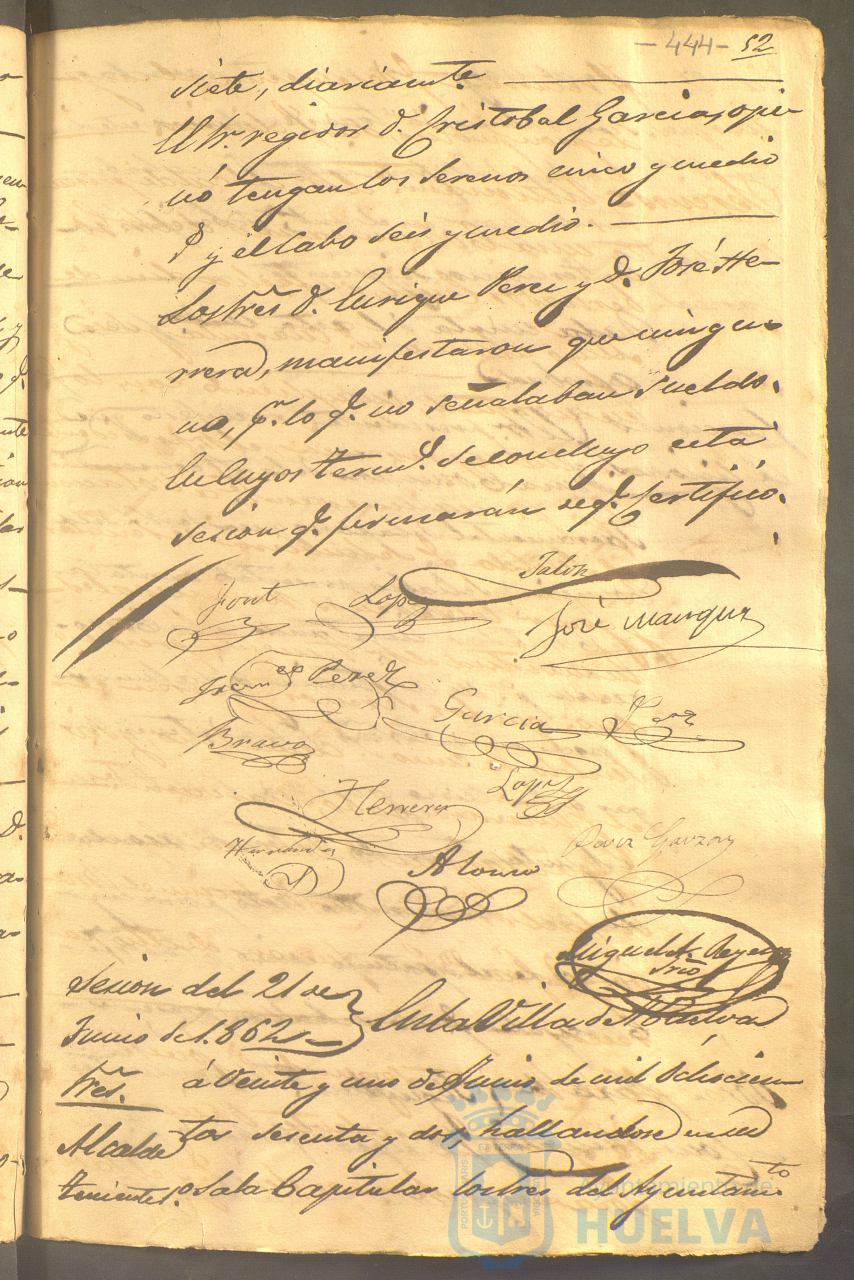 - 444 - 52
siete, diariamte.
El Sr. regidor d. Cristobal Garcia, opi-
nó tengan los serenos cinco y medio
rs. y el Cabo seis y medio.
Los Sres. d. Enrique Perez y d. José He-
rrera, manifestaron que ningu-
no, pr. lo qe. no señalaban sueldo.
En cuyos termos. se concluyó esta
sesion qe. firmarán segn. Certifico.
Font Lopez Jalon
José Marquez
Franco Perez
Garcia Perez
Bravo
Lopez
Herrera
Hernandez Alonso Perez Garzon
Miguel
Srio
Sesion del 21 de
Junio de 1.862
En la Villa de Huelva
Sres. á Veinte y uno de Junio de mil Ochocien-
Alcalde tos sesenta y dos, hallandose en su
tenientes. Sala Capitular los Sres del Ayuntamto
Ayuntamiento de
HUELVA